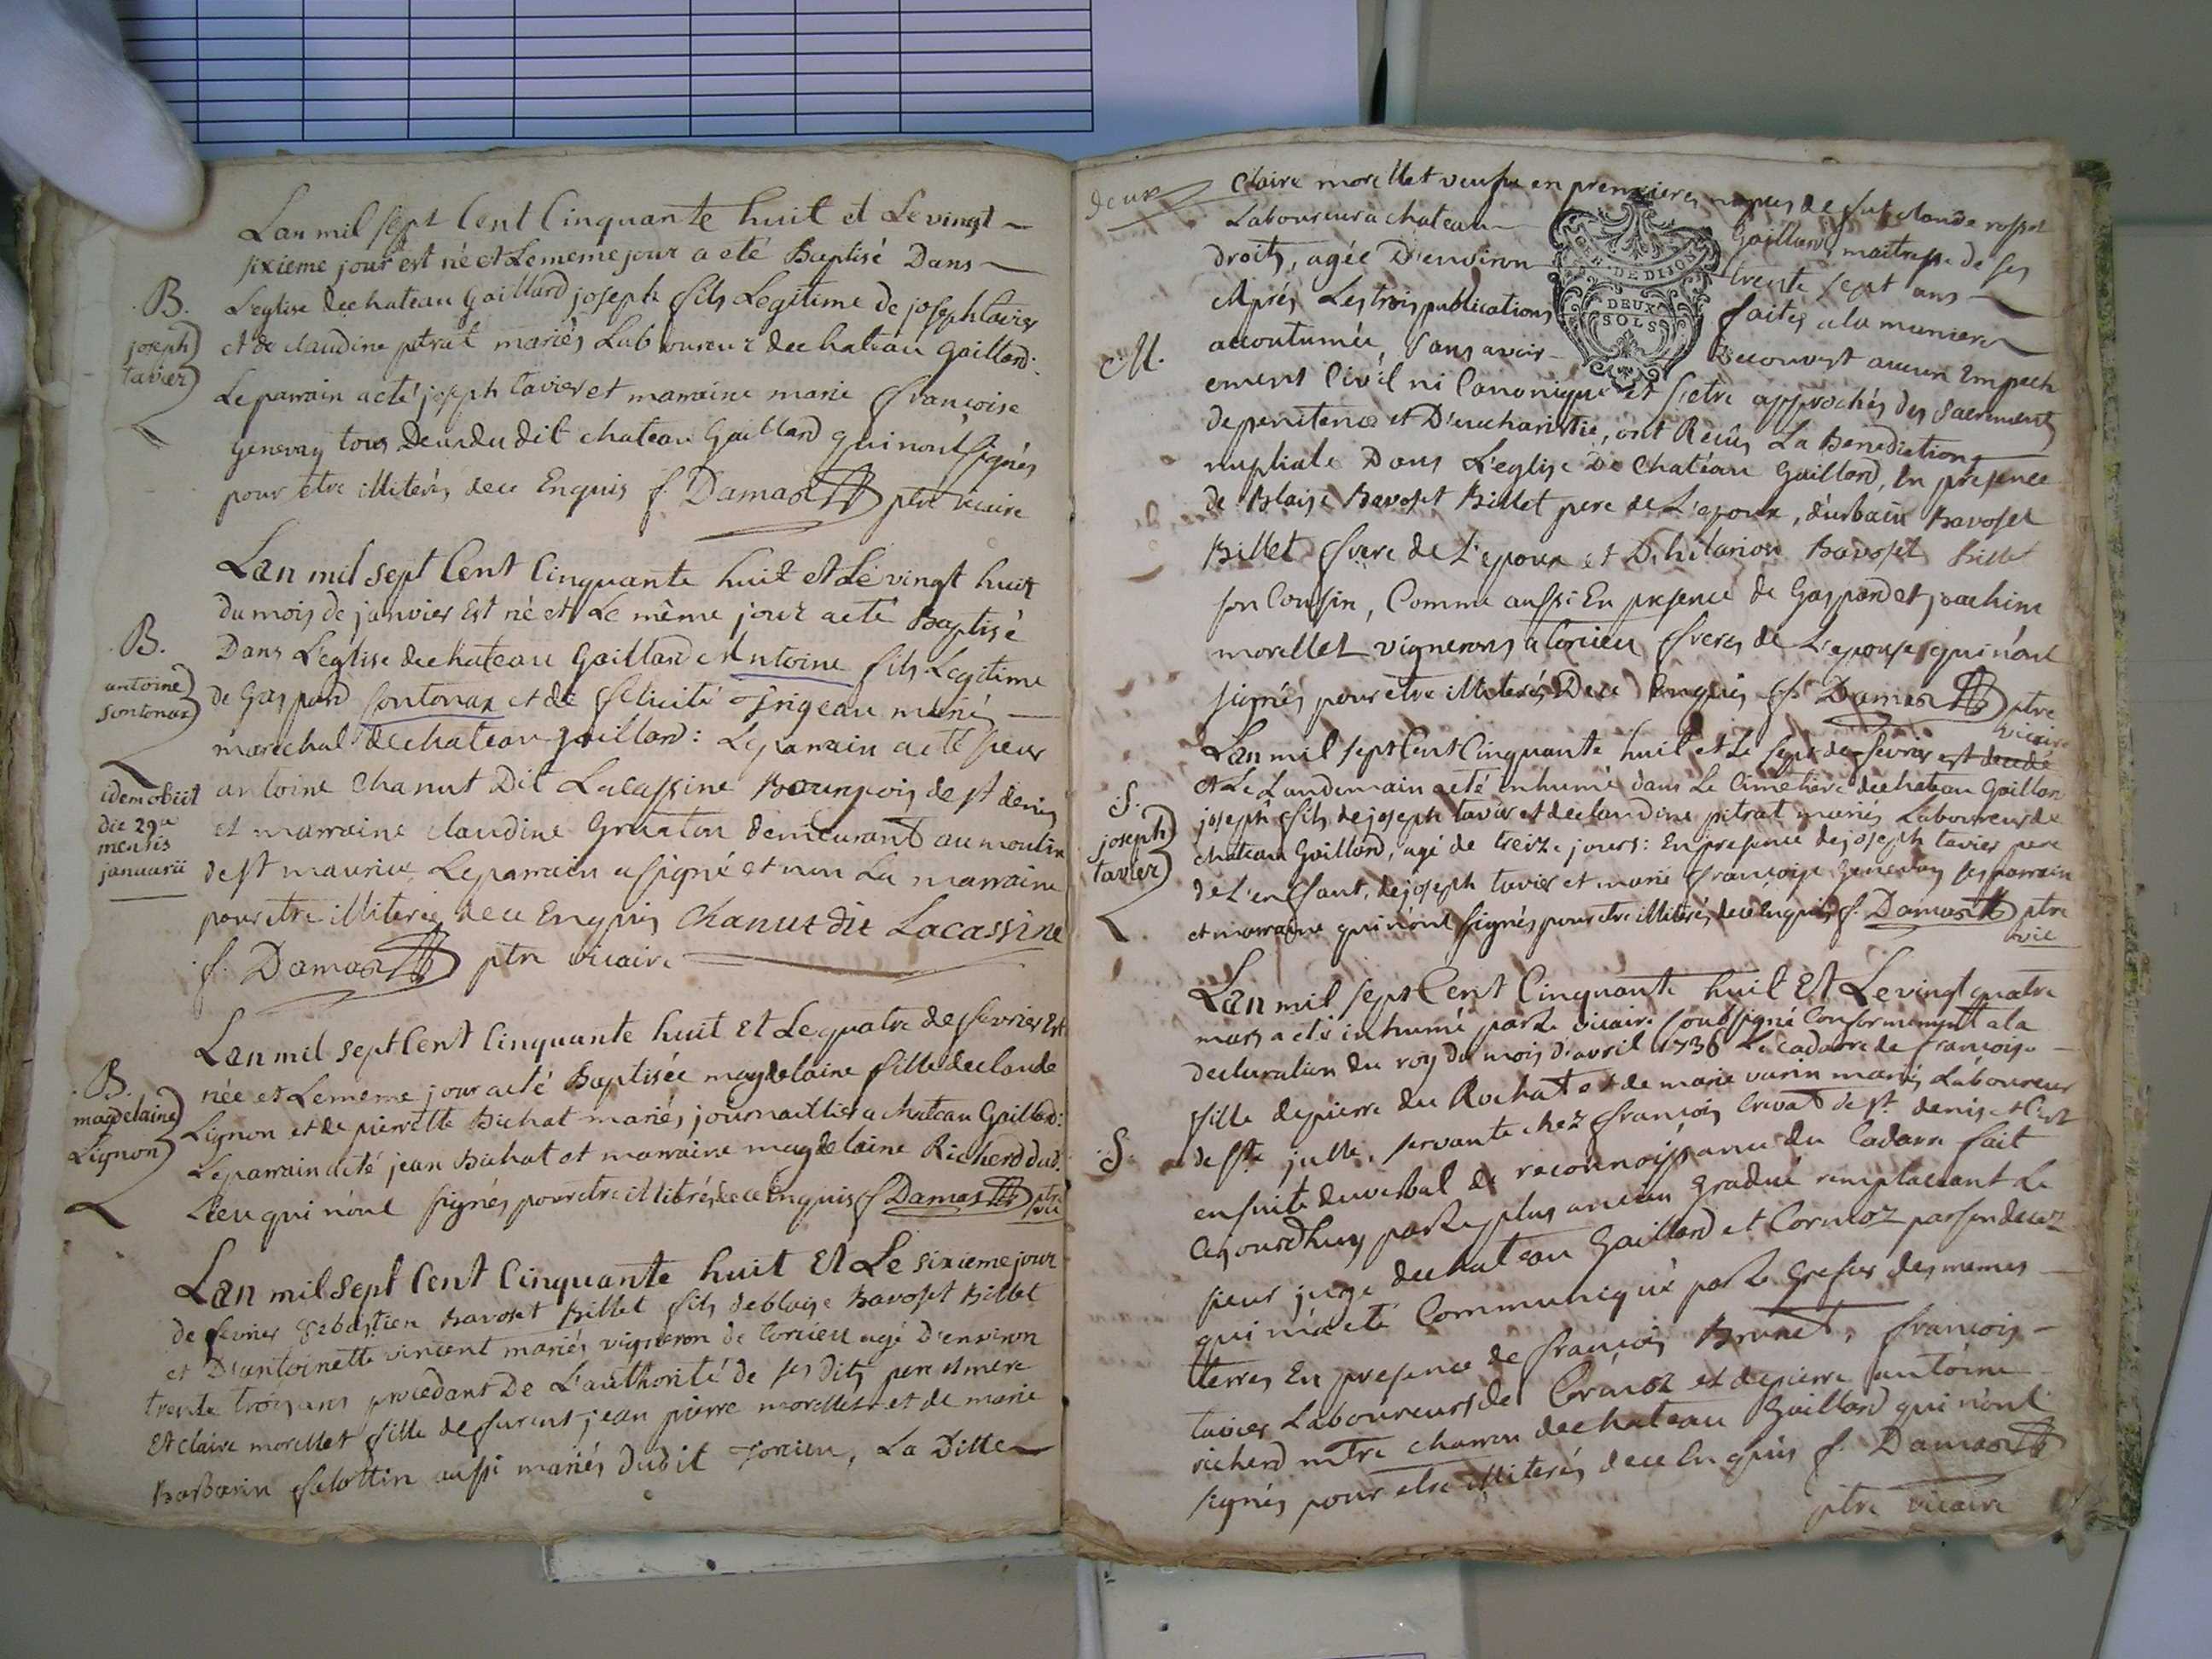 Lan mil sept Cent Cinquante huit et Le vingt
sixieme jour est né et Le meme jour a eté Baptisé Dans
B.
joseph
tavier
L'eglise de chateau Gaillard joseph fils Legitime de joseph tavier
et de claudine pitrat mariés Laboureur de chateau Gaillard.
Le parrain a eté joseph tavier et marraine marie francoise
Genevay tous Deux du dit chateau Gaillard qui n'ont signés
pour etre illiterés de ce Enquis f. Damas ptre vicaire
Lan mil sept Cent Cinquante huit et Le vingt huit
du mois de janvier Est né et Le même jour a eté Baptisé
B.
antoine
sontonax
Dans L'eglise de chateau Gaillard Antoine fils Legitime
de Gaspard sontonax et de felicité mariés
marechal de chateau gaillard: Le parrain a eté sieur
idem obiit
die 29a
mensis
januarii
antoine Chanut Dit Lacassine Bourgeois de st denis
et marraine claudine Gruaton demeurant au moulin
de st maurice, Le parrain a signé et non La marraine
pour etre illiterée de ce Enquis Chanut dit Lacassine
f. Damas ptre vicaire
Lan mil sept Cent Cinquante huit Et Le quatre de fevrier Est
B.
magdelaine
Lignon
née et Le meme jour a eté Baptisée magdelaine fille de claude
Lignon et de pierrette Bichat mariés journaillier a chateau Gaillard:
Le parrain a eté jean Bichat et marraine magdelaine Richerd dud.
Lieu qui n'ont signés pour etre illiterés de ce Enquis f Damas ptre
vic
Lan mil sept Cent Cinquante huit Et Le sixieme jour
de fevrier Sebastien Bavoset Billet fils de blaise Bavoset Billet
et D'antoinette vincent mariés vigneron de Torcieu agé D'environ
trente trois ans procedant De L'authorité de ses dits pere et mere
Et claire morellet fille de furent jean pierre morellet et de marie
Barbarin felottin aussi mariés dudit Torcieu, La Ditte
deux
claire morellet veufve en premieres nopces de fut claude rosset
Laboureur a chateau Gaillard maitresse de ses
droits, agée D'environ trente sept ans
Aprés Les trois publications faites a la maniere
M.
accoutumée, sans avoir Decouvert aucun Empech
ement Civil ni Canonique et s'etre approchés des sacrements
de penitence et D'eucharistie, ont Recûs La Benediction
nuptiale Dans L'eglise De Chatéau Gaillard, En presence
de Blaise Bavoset Billet pere de L'epoux, d'urbain Bavoset
Billet frere de L'epoux et D'hilarion Bavoset Billet
son Cousin, Comme aussi En presence de Gaspard et joachim
morellet vignerons a torcieu freres de L'epouse qui n'ont
signés pour etre illiterés De ce Enquis f. Damas ptre
vicaire
Lan mil sept Cent Cinquante huit et Le sept de fevrier est decedé
et Le Landemain a eté inhumé dans Le Cimetiere de chateau Gaillard
S.
joseph
tavier
joseph fils de joseph tavier et de claudine pitrat mariés Laboureur de
chateau Gaillard, agé de treize jours: En presence de joseph tavier pere
de L'enfant, de joseph tavier et marie françoise Genevay ses parrain
et marraine qui n'ont signés pour etre illiterés de ce Enquis f. Damas ptre
vic
Lan mil sept Cent Cinquante huit Et Le vingt quatre
mars a eté inhumé par Le vicaire soubsigné Conformement a la
declaration du roy du mois d'avril 1736 Le cadavre de françoise
fille de pierre du Rochat et de marie varin mariés Laboureur
S.
de ste julle, servante chez françois Crevat de st. denis et C'est
ensuite du verbal de reconnoissance du Cadavre fait
Cejourdhuy par Le plus ancien Gradué remplaceant Le
sieur juge de chateau Gaillard et Cormoz
qui m'a eté Communiqué par Le Grefier des memes
terres En presence de françois Brunet, françois
tavier Laboureurs de Cormoz et de pierre antoine
richerd mtre charron de chateau Gaillard qui n'ont
signés pour etre illiterés de ce Enquis f. Damas
ptre vicaire
G. DE DIJON
DEUX
SOLS